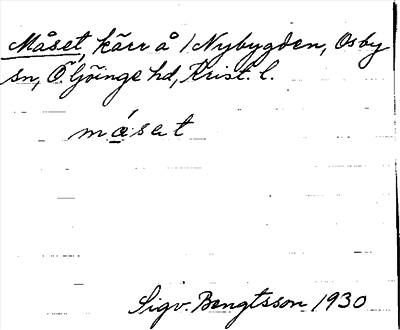 Måset, kärr å /Nybygden, Osby
sn, Ö. Göinge hd, Krist. l.
måset
Sigv. Bengtsson 1930